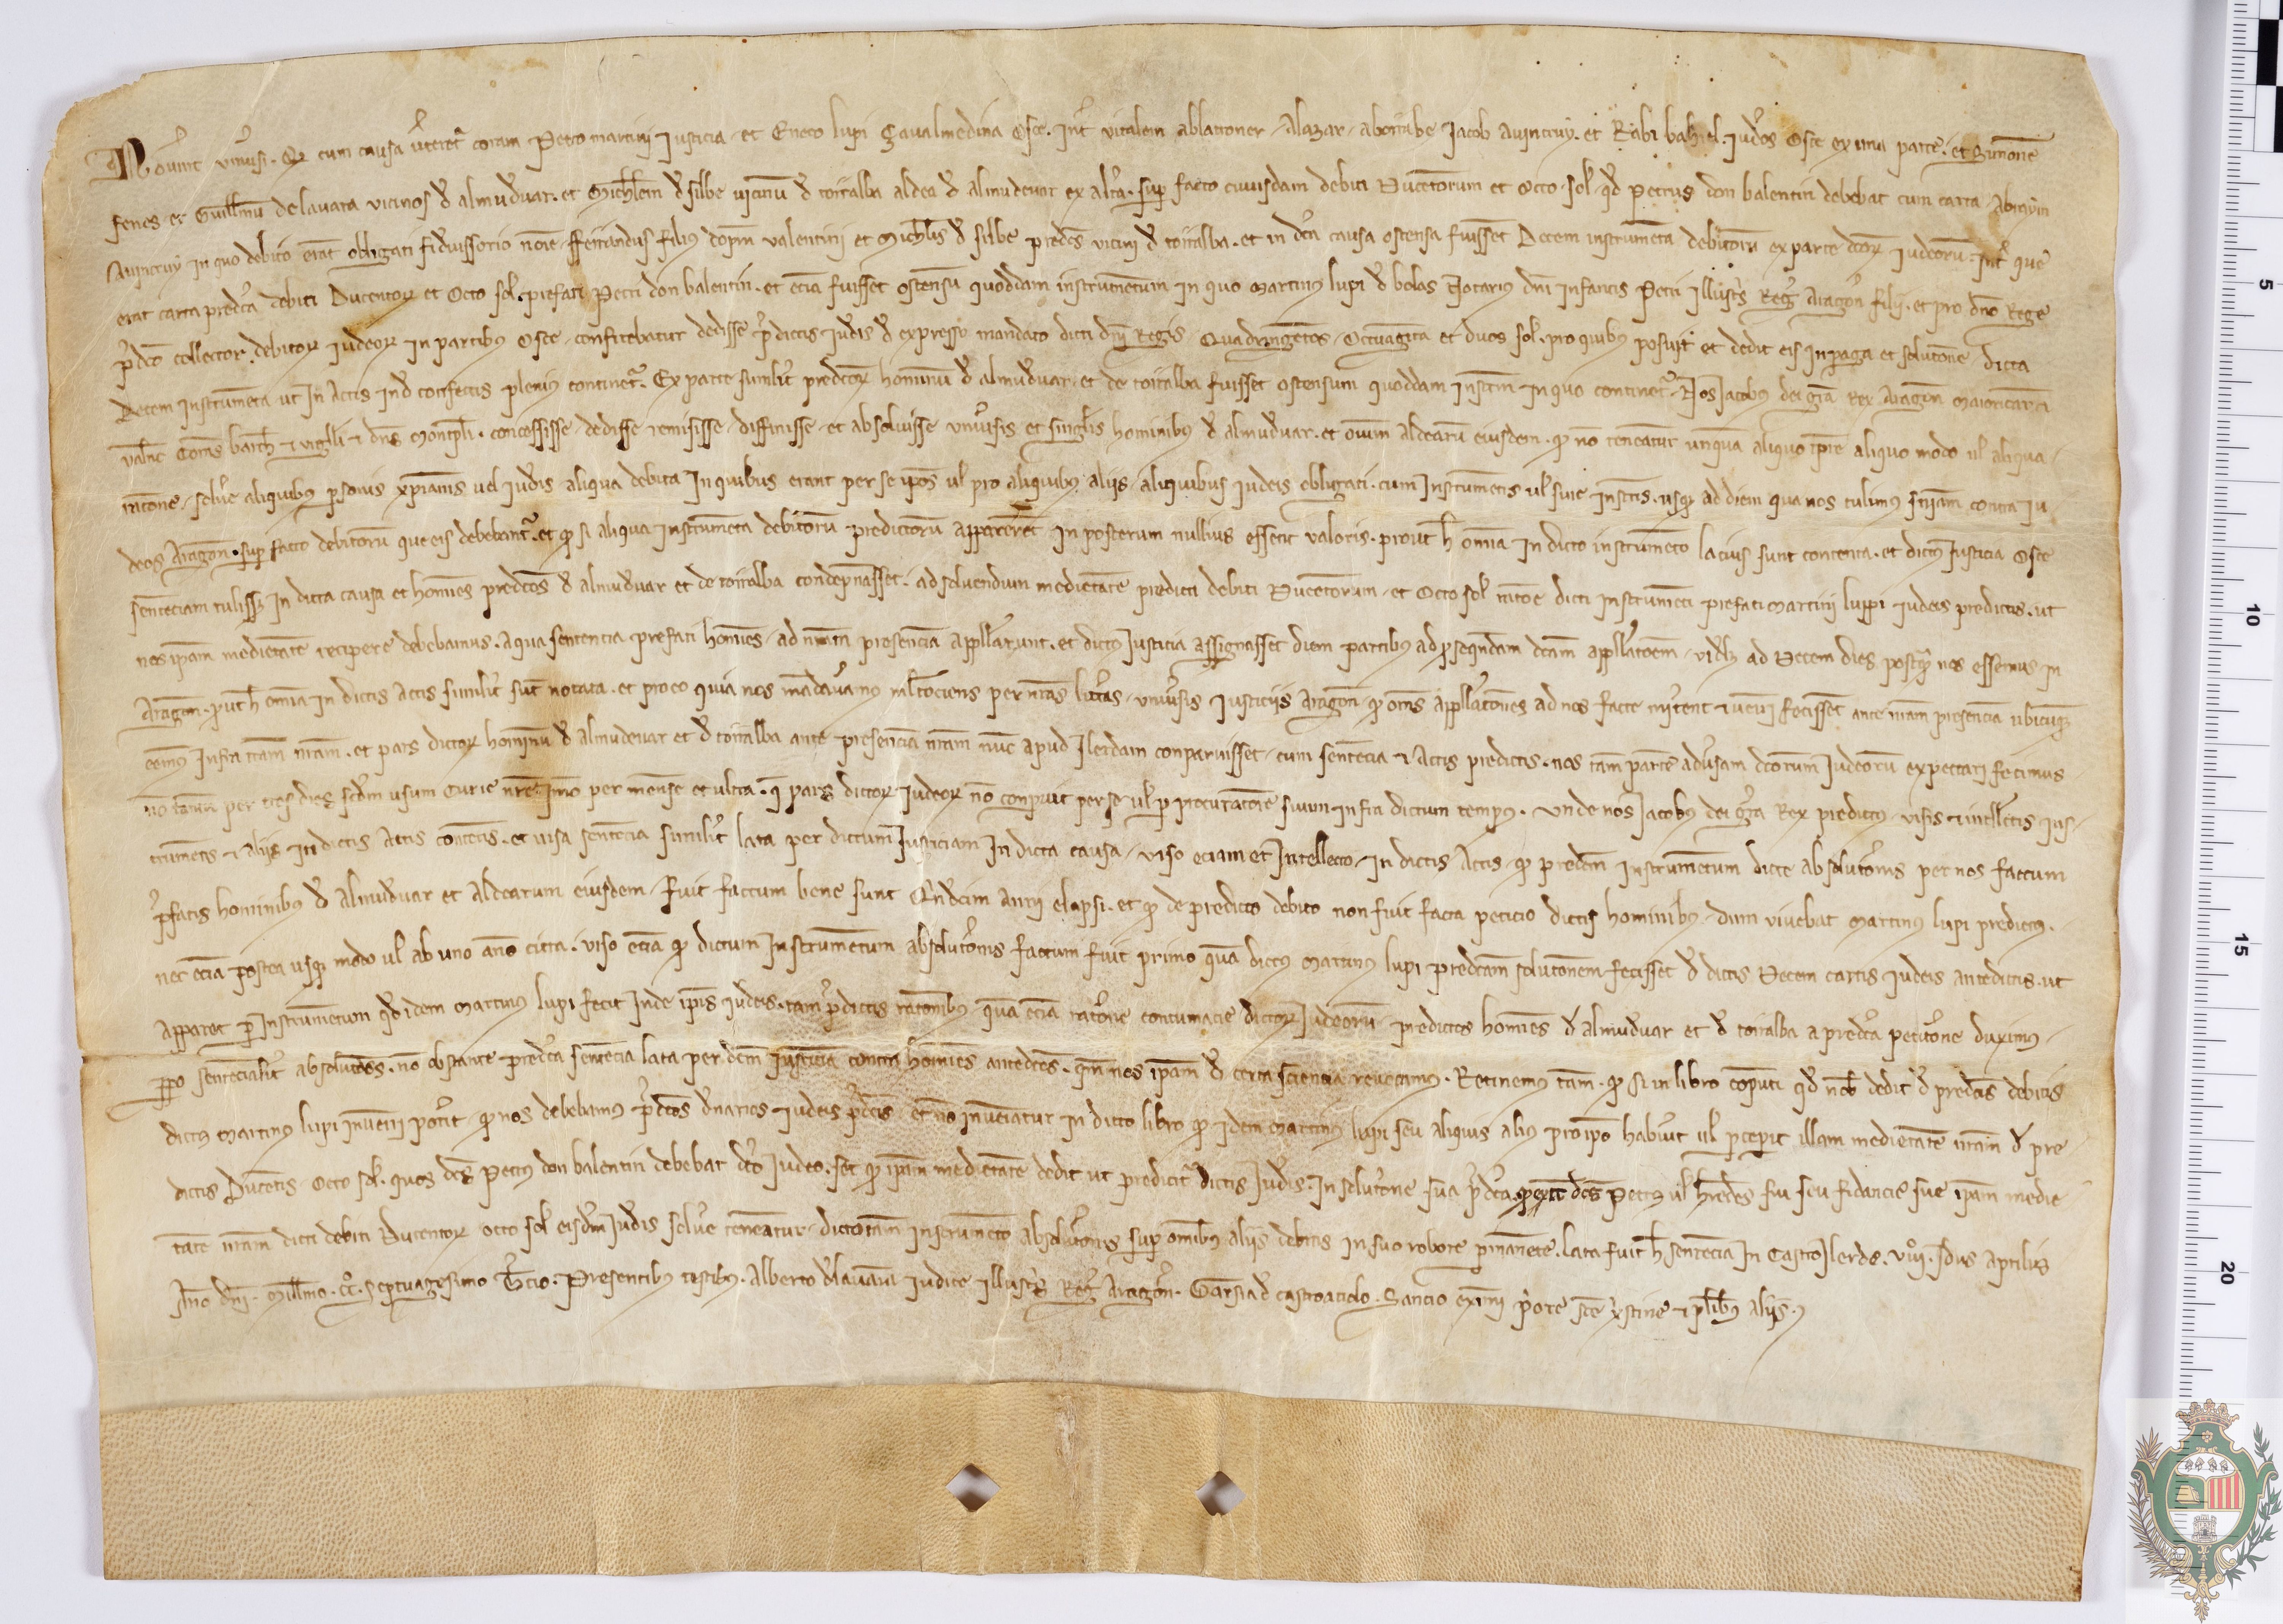 Noverint universi. Qd cum causa verteretr coram Petro martini Justicia et Eneco lupi Çavalmedina Osce. Inter vitalem ablatroner alazar abontabe Jacob avincruy. et Rabi bahiel. iudeos Osce ex una parte. et Simonem
fenes et Guillmum de lavata vicinos d almudevar. et Michlem d silbe vicinum d torralba aldea d almudevar ex altera. super facto cuiusdam debiti Ducentorum et Octo sol qd Petrus don balentin debebat cum carta Abraym
Avincruy in quo debito erant obligati fideiussorio nomine fferrandus filius dompni valentini et Michlis d silbe predcs vicini d torralba. et in dca causa ostensa fuissent Decem instrumenta debitorum ex parte dcor iudeorum. Inter que
erat carta predca debiti Ducentor et Octo sol. prefati Petri don balentin. et ecia fuisset ostensum quoddam instrumentum in quo Martinus lupi d bolas Notarius dni Infantis Petri illustris Reg Aragon filii. et pro dno Rege
predco collector debitor iudeor in partibus Osce confitebatur dedisse predictis iudeis d expresso mandato dicti dni Regis Quadringentos Octuaginta et duos sol. pro quibus posuit et dedit eis in paga et solutone dicta
Decem instrumenta ut in Actis inde confectis plenius continetr. Ex parte similiter predcor hominum d almudevar et de torralba fuisset ostensum quoddam instrm in quo continetr. Nos Jacobus dei gra Rex Aragon Maioricarum
valenc Comes barch et urgelli et dns Montpli. concessisse dedisse remisisse diffinisse et absolvisse universis et singlis hominibus d almudevar. et omnium aldearum eiusdem. qd no teneantur unquam aliquo tpre aliquo modo vel aliqua
ratone solvere aliquibus personis xpianis vel iudeis aliqua debita in quibus erant per se ipos vel pro aliquibus aliis aliquibus iudeis obligati. cum Instrumentis vel sine instris. usq ad diem qua nos tulimus sniam contra iu
deos Aragon. super facto debitorum que eis debebantr. et qd si aliqua instrumenta debitorum predictorum apparerent in posterum nullius essent valoris. prout h omnia in dicto instrumento lacius sunt contenta. et dictus Justicia Osce
sentenciam tulisset in dicta causa et homines predcos d almudevar et de torralba condepnasset. ad solvendum medietatem predicti debiti Ducentorum et Octo sol ratone dicti instrumenti prefati Martini luppi iudeis predictis. ut
nos ipam medietatem recipere debebamus. a qua sentencia prefati homines ad nram presencia appllarunt. et dictus Justicia assignasset diem partibus ad prosequndam dcam appllatoem videlz ad Decem dies postq nos essemus in
Aragon. put h omnia in dictis actis similiter sunt notata. et pro eo quia nos mandavimus multociens per nras litteras universis Justiciis Aragon qd omes appllatones ad nos facte mitterent et veniri fecissent ante nram presencia ubicuq
essemus infra terram nram. et pars dictor hominum d almudevar et d torralba ante presencia nram nunc apud Ilerdam conparuisset cum sentencia et Actis predictis. nos tam partem adversam dcorum Judeorum expectari fecimus
no tantum per tres dies scdm usum Curie nre imo per mensem et ultra. q pars dictor iudeor no conparuit per se vel p procuratorem suum infra dictum tempus. Unde nos Jacobus dei gra Rex predictus visis et intellectis ins
trumentis et aliis in dictis Actis contentis. et visa sentencia similiter lata per dictum Justiciam in dicta causa. viso eciam et Intellecto in dictis Actis qd predcm Instrumentum dicte absolutonis per nos factum
prefatis hominibus d almudevar et aldearum eiusdem fuit factum bene sunt Quindecim anni elapsi. et qd de predicto debito non fuit facta peticio dictis hominibus dum vivebat Martinus lupi predictus.
nec ecia postea usq modo vel ab uno anno citra. viso ecia qd dictum Instrumentum absolutonis factum fuit primo qua dictus Martinus lupi predcam solutonem fecisset d dictis Decem cartis iudeis antedictis. ut
apparet p Instrumentum qd idem Martinus lupi fecit inde ipis iudeis. tam predictis ratonibus qua ecia ratone contumacie dictor Judeorum predictos homines d almudevar et d torralba a predca petitone duximus
ppo sentencialiter absolvendos. no obstante predca sentencia lata per dcm Justicia contra homines antedcos. qm nos ipam d certa sciencia revocamus. Retinemus tam. qd si in libro computi qd nob dedit d predcis debitis
dictus Martinus lupi inveniri poterit qd nos debebamus predcos denarios iudeis predcis. et no inveniatur in dicto libro qd idem Martinus lupi seu aliquis alius pro ipo habuit vel percepit illam medietatem nram d pre
dictis Ducentis Octo sol. quos dcs Petrus don balentin debebat dco Judeo. set qd ipam medietatem dedit ut predicitr dictis Judeis. in solutone sua predca. qd dcs Petrus vel heredes sui seu fidancie sue ipam medie
tatem nram dicti debiti Ducentor octo sol eisdem Judeis solvere teneantur. dicto tam instrumento absolutonis super omnibus aliis debitis in suo robore permanente. Lata fuit h sentencia in Castro Ilerde. viii. Idus Aprilis
Anno dni. Millmo. cc. septuagesimo Tercio. Presentibus testibus. Alberto d lavania iudice illustris Reg Aragon. Garsia d castroaciolo. Sancio eximini priore sce xpistine et plibus aliis.